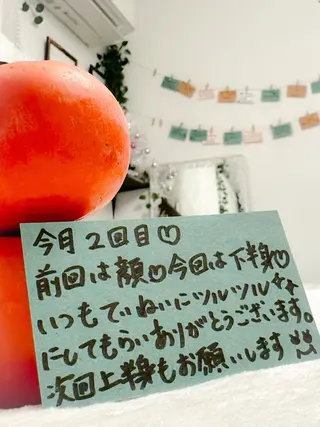 今月2回目♡
前回は顔♡今回は下半身♡
いつもていねいにツルツルな
にしてもらいありがとうございます。
次回上半身もお願いします